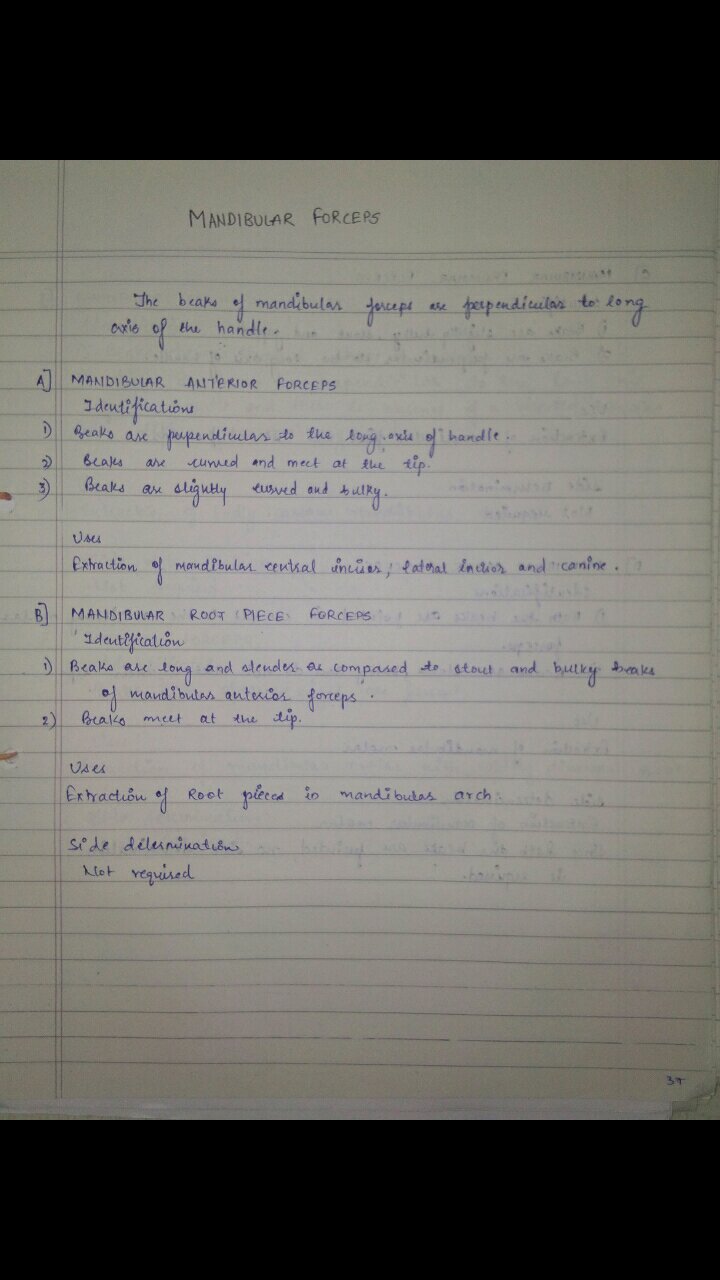 MANDIBULAR FORCEPS
The beaks of mandibular forceps are perpendicular to long
axis of the handle.
A] MANDIBULAR ANTERIOR FORCEPS
Identifications
1) Beaks are perpendicular to the long axis of handle.
2) Beaks are curved and meet at the tip.
3) Beaks are slightly curved and bulky.
Uses
Extraction of mandibular central incisor, lateral incisor and canine.
B] MANDIBULAR ROOT PIECE FORCEPS
Identification
1) Beaks are long and slender as compared to stout and bulky beaks
of mandibular anterior forceps.
2) Beaks meet at the tip.
Uses
Extraction of Root pieces in mandibular arch
Side determination
Not required